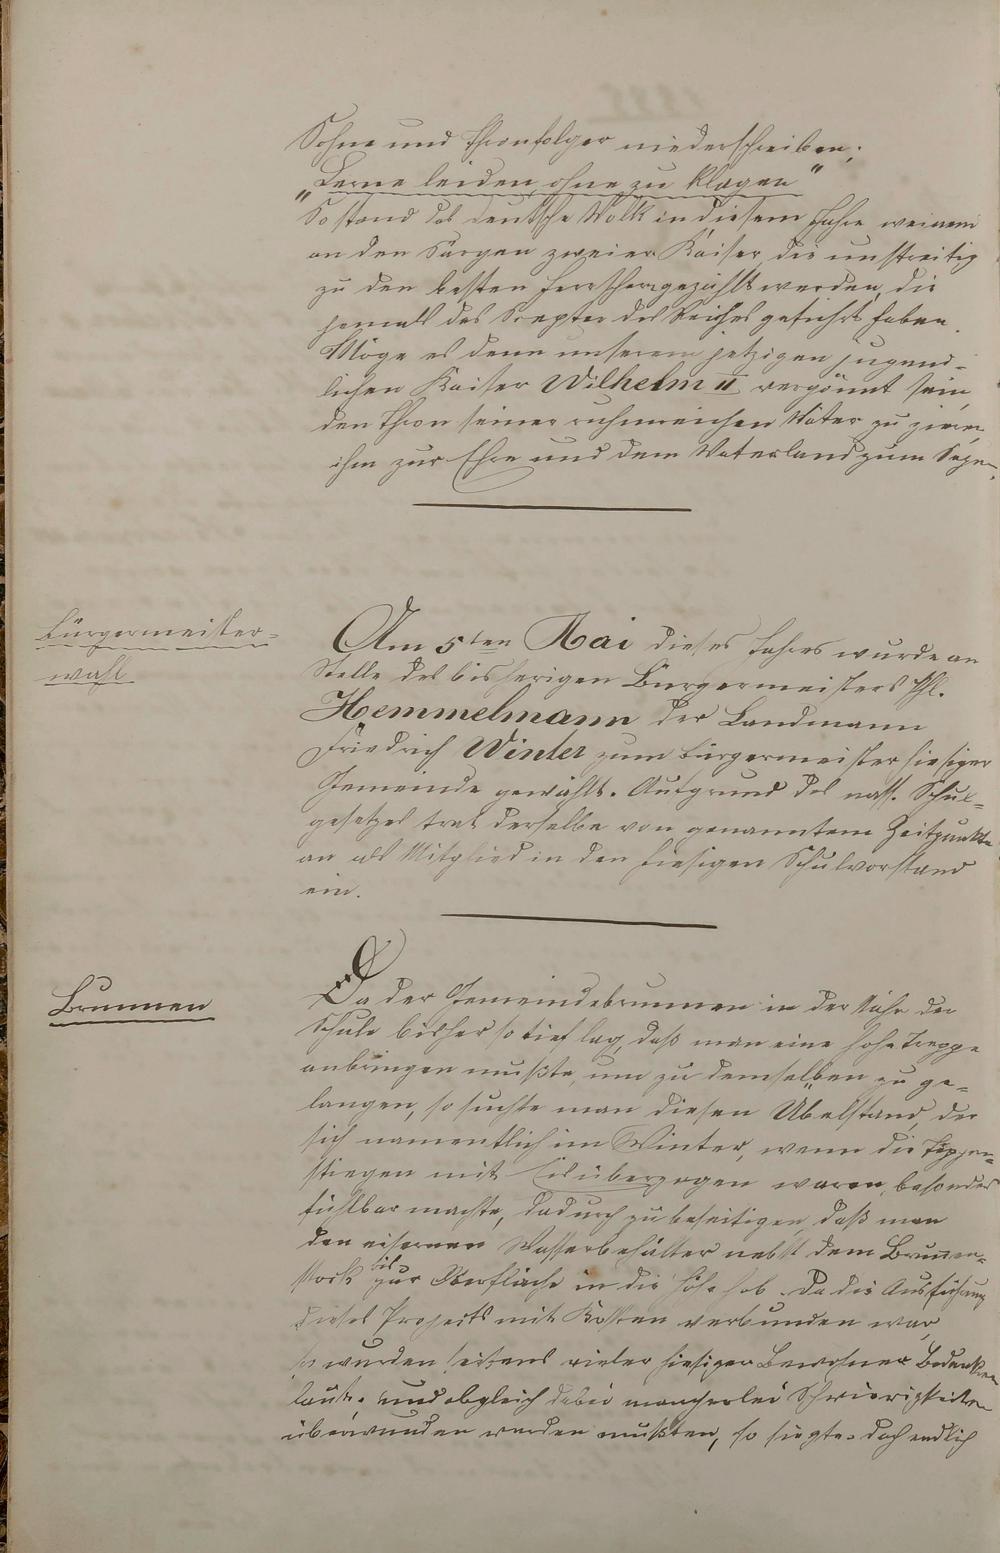 Sohne und Thronfolger niederschreiben:
„Lerne leiden, ohne zu klagen“
So stand das deutsche Volk in diesem Jahre weinend
an den Särgen zweier Kaiser, die unstreitig
zu den besten Herrschern gezählt werden, die
jemals das Scepter des Reiches geführt haben.
Möge es denn unserem jetzigen jugend-
lichen Kaiser Wilhelm II vergönnt sein,
den Thron seiner ruhmreichen Väter zu zieren,
ihm zur Ehre und dem Vaterland zum Segen.
Bürgermeister-
wahl
Am 5ten Mai dieses Jahres wurde an
Stelle des bisherigen Bürgermeisters Phl.
Hemmelmann der Landmann
Friedrich Winter zum Bürgermeister hiesiger
Gemeinde gewählt. Aufgrund des nass. Schul-
gesetzes trat derselbe von genanntem Zeitpunkte
an als Mitglied in den hiesigen Schulvorstand
ein.
Brunnen
Da der Gemeindebrunnen in der Nähe der
Schule bisher so tief lag, daß man eine hohe Treppe
anbringen mußte, um zu demselben zu ge-
langen, so suchte man diesen Übelstand, der
sich namentlich im Winter, wenn die
stiegen mit Eis überzogen waren, besonders
fühlbar machte, dadurch zu beseitigen, daß man
den eisernen Wasserbehälter nebst dem Brunnen-
stock bis zur Oberfläche in die Höhe hob. Da die Ausführung
dieses Projects mit Kosten verbunden war,
so wurden seitens vieler hiesiger Bewohner Bedenken
laut. Und obgleich dabei mancherlei Schwierigkeiten
überwunden werden mußten, so siegte doch endlich